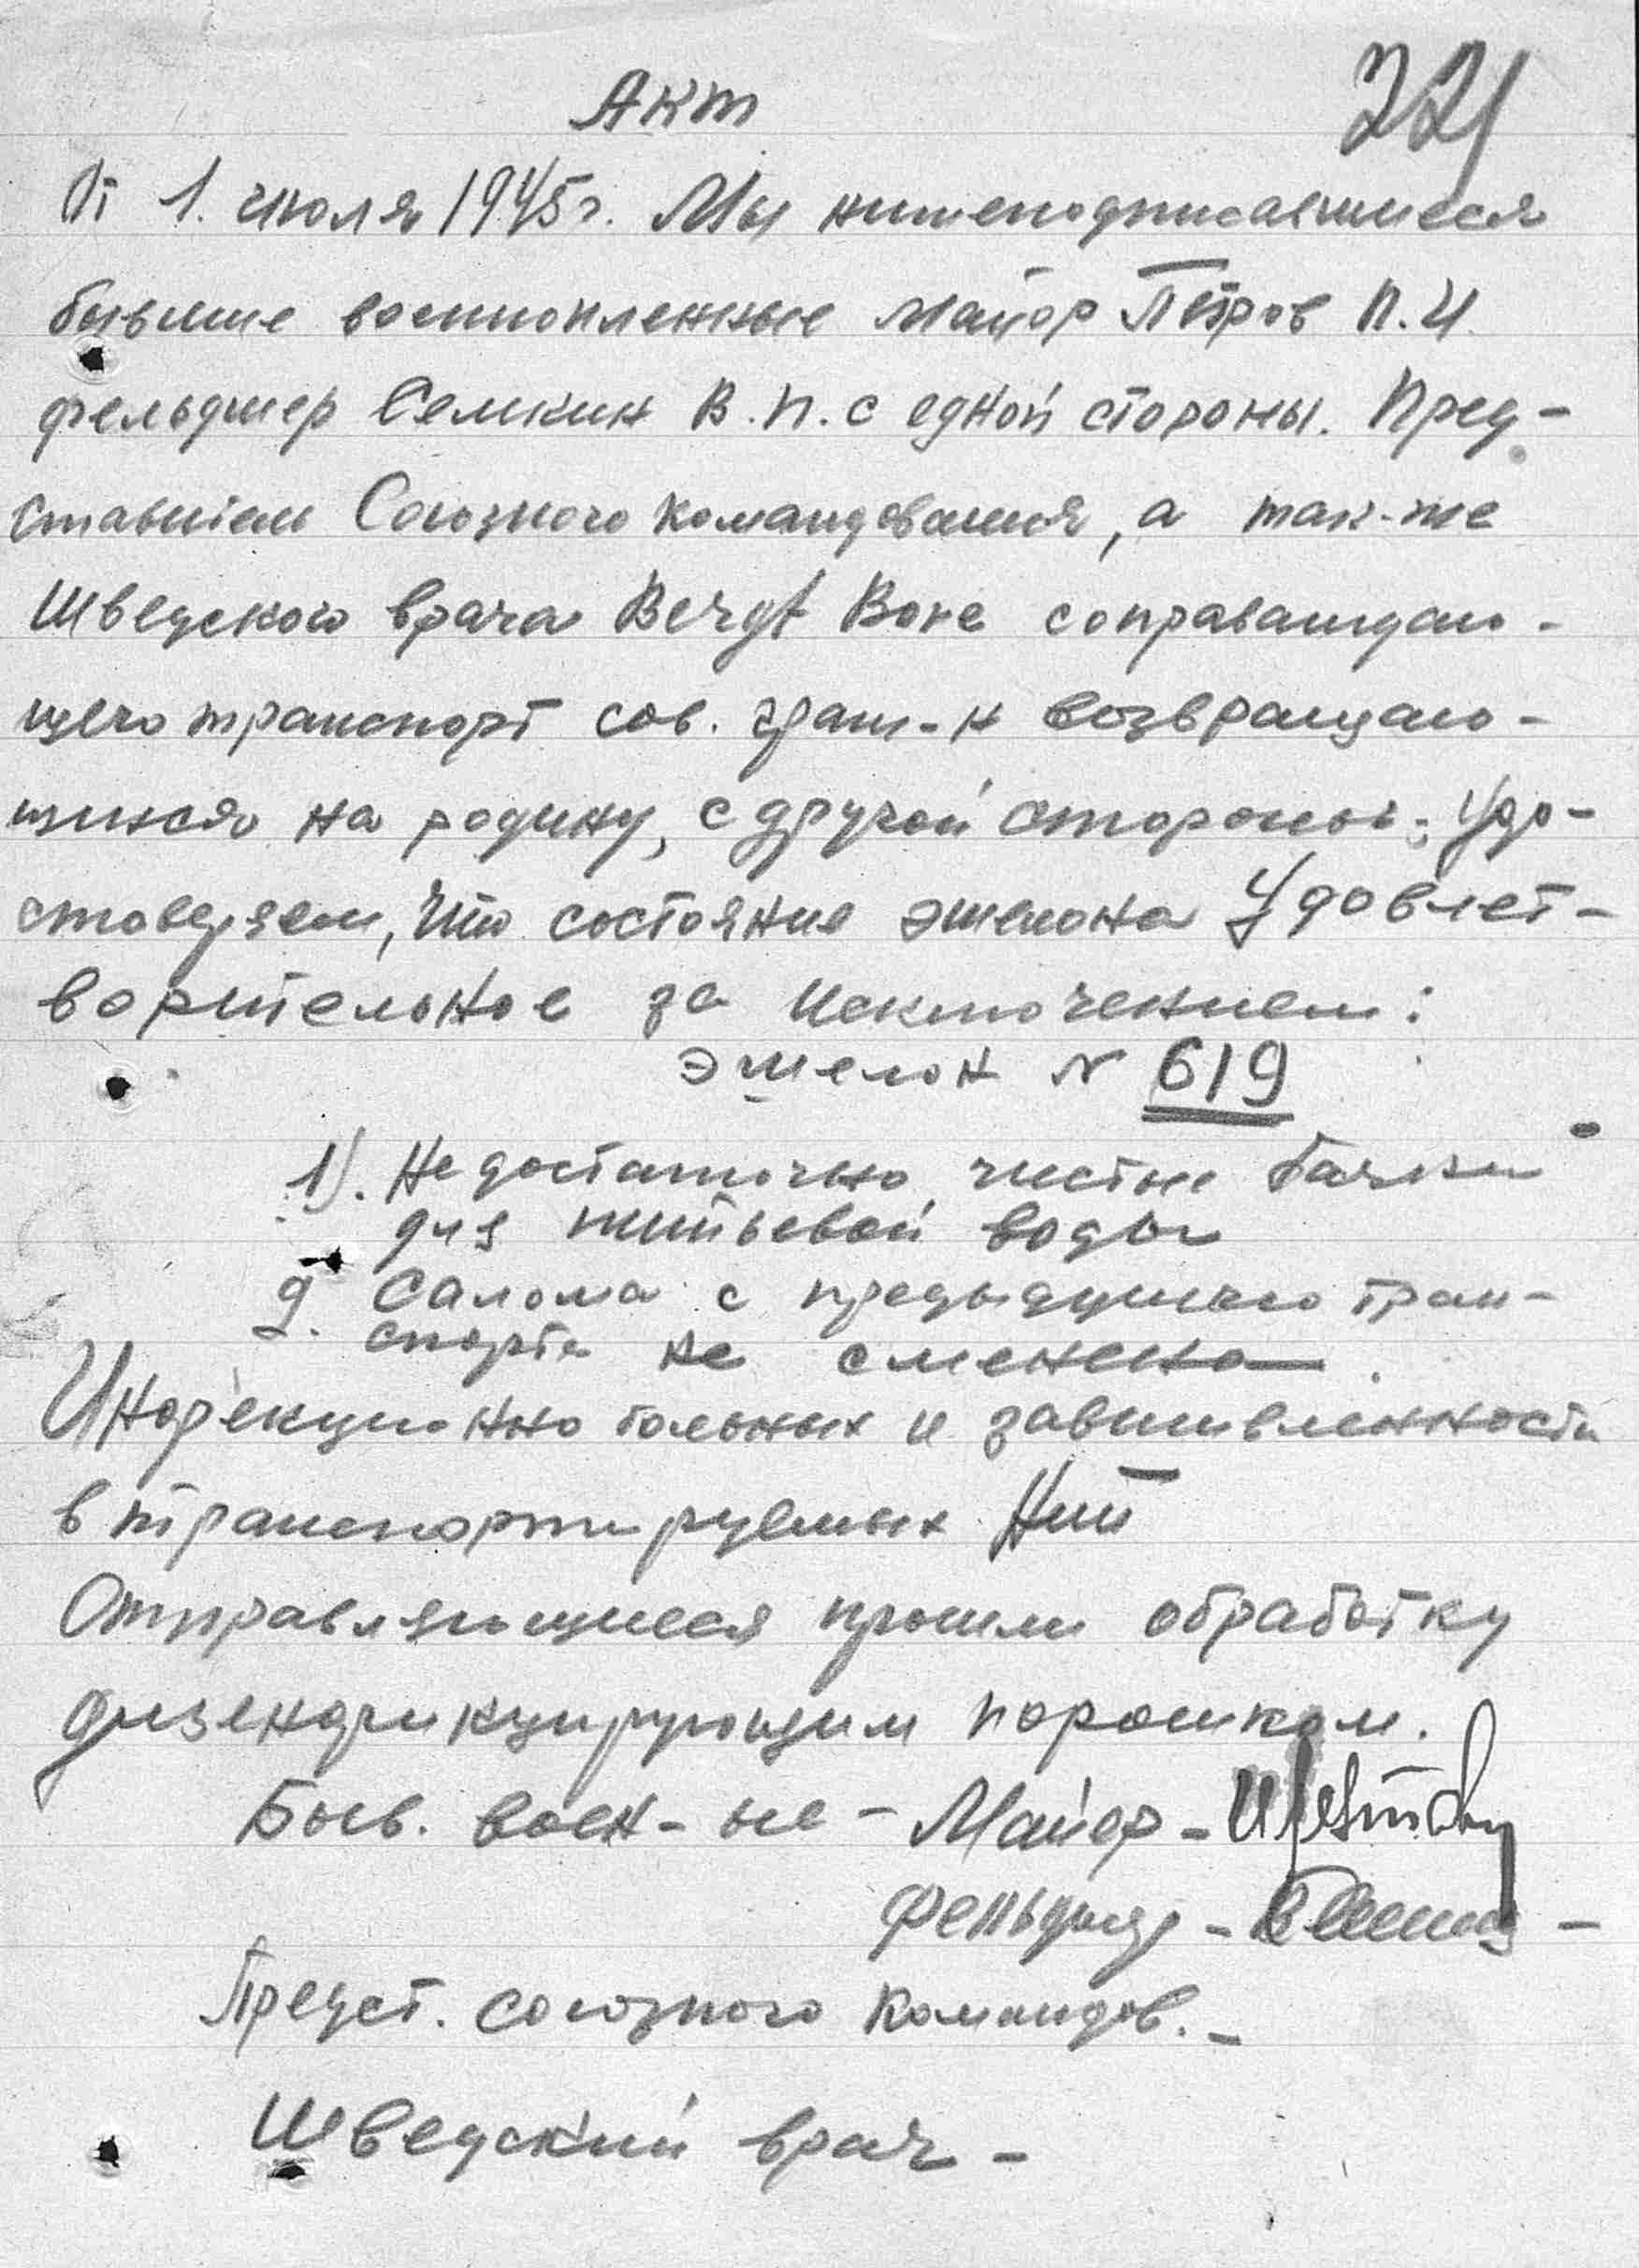 Акт
221
От 1. июля 1945 г. Мы нижеподписавшиеся
бывшие военнопленные Майор Петров П.И.
фельдшер Семкин В.П. с едной стороны. Пред-
ставителы Союзного командования, а так-же
Шведского врача Bengt Bore соправаждаю-
щего транспорт сов. граж-н возвращаю-
щихся на родину, с другой стороны, Удо-
стоверяем, что состояние эшелона Удовлет-
ворительное за исключением:
эшелон N 619
1). Недостаточно чистые бачки
для питьевой воды
2. Салома с предыдущего тран-
спорта не сменена.
Инфекционно больных и завшивленности
в транспортируемых Нет
Отправляющиеся прошли обработку
дизенфикцирующим порошком.
Быв. воен-ые - Майор -
Фельдшер -
Предст. союзного командов. -
Шведский врач -